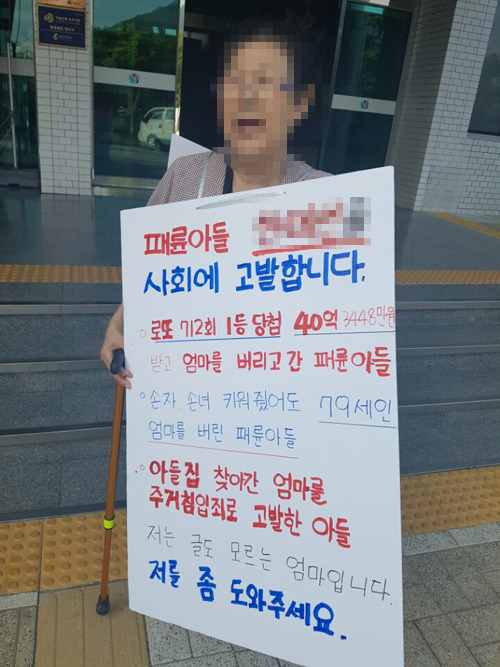 패륜아들
사회에 고발합니다.
○ 로또 712회 1등 당첨 40억 3448만원
받고 엄마를 버리고 간 패륜아들
○ 손자. 손녀 키워줬어도 79세인
엄마를 버린 패륜아들
○ 아들집 찾아간 엄마를
주거침입죄로 고발한 아들
저는 글도 모르는 엄마입니다.
저를 좀 도와주세요.